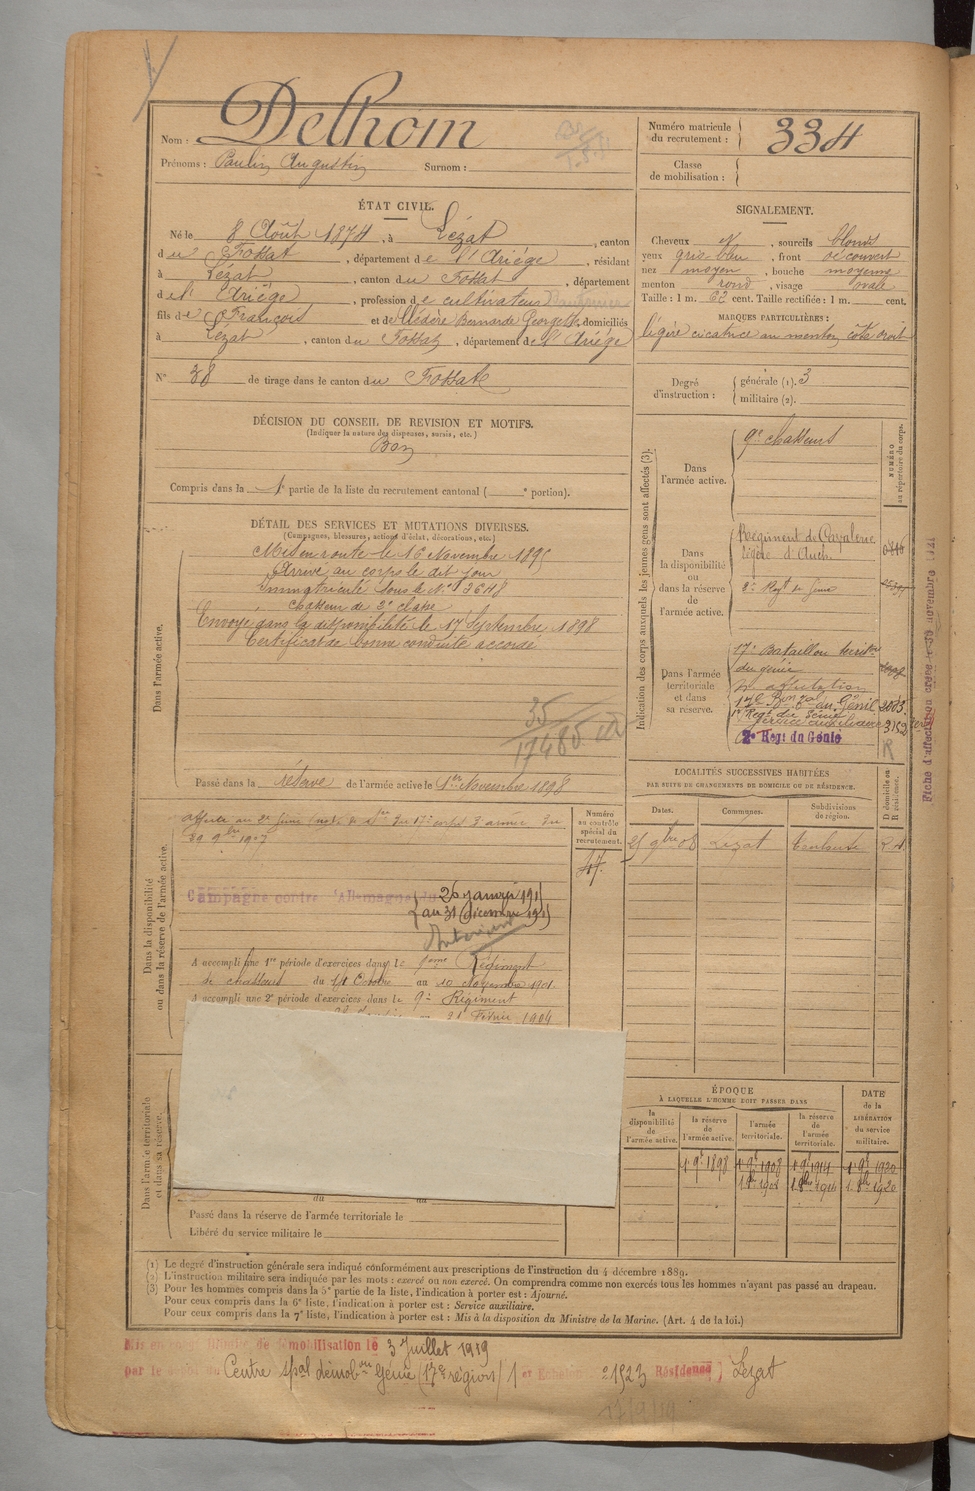 Nom : Delhom
Prénoms : Paulin Augustin Surnom :
Numéro matricule du recrutement : 334
Classe de mobilisation :
ÉTAT CIVIL.
Né le 8 Août 1874, à Lézat, canton
du Fossat, département de l'Ariége, résidant
à Lézat, canton du Fossat, département
de l'Ariége, profession de cultivateur
fils de François et de Clédère Bernarde Georgette, domiciliés
à Lézat, canton du Fossat, département de l'Ariége
N° 38 de tirage dans le canton du Fossat
DÉCISION DU CONSEIL DE REVISION ET MOTIFS.
(Indiquer la nature des dispenses, sursis, etc.)
Bon
Compris dans la 1e partie de la liste du recrutement cantonal ( e portion).
DÉTAIL DES SERVICES ET MUTATIONS DIVERSES.
(Campagnes, blessures, actions d'éclat, décorations, etc.)
Dans l'armée active.
Mis en route le 16 Novembre 1895
Arrivé au corps le dit jour
Immatriculé sous le N° 3618
chasseur de 2e classe
Envoyé dans la disponibilité le 17 Septembre 1898
Certificat de bonne conduite accordé
35
17480
Passé dans la réserve de l'armée active le 1er Novembre 1898
Dans la disponibilité ou dans la réserve de l'armée active.
Numéro au contrôle spécial du recrutement.
47.
Campagne contre l'Allemagne du 26 janvier 1915
au 31 décembre 1915
Intérieur
A accompli une 1re période d'exercices dans le 9eme Régiment
de chasseurs du 14 Octobre au 10 Novembre 1901
A accompli une 2e période d'exercices dans le 9e Régiment
au 21 Février 1904
Dans l'armée territoriale et dans sa réserve.
du au
Passé dans la réserve de l'armée territoriale le
Libéré du service militaire le
SIGNALEMENT.
Cheveux et, sourcils blonds
yeux gris-bleu, front découvert
nez moyen, bouche moyenne
menton rond, visage ovale
Taille : 1 m. 62 cent. Taille rectifiée : 1 m. cent.
MARQUES PARTICULIÈRES :
légère cicatrice au menton côté droit
Degré d'instruction : générale (1). 3
militaire (2).
Indication des corps auxquels les jeunes gens sont affectés (3).
NUMÉRO au répertoire du corps.
Dans l'armée active. 9e chasseurs
Dans la disponibilité ou dans la réserve de l'armée active.
Régiment de Cavalerie
légère d'Auch
2e Regt du Génie
Dans l'armée territoriale et dans sa réserve.
17e Bataillon territorial
du génie
17e Bon Tal du Génie 2003
1er Regt du Génie
Service auxiliaire 3152
2e Regt du Génie
R
Fiche d'affectation créée le 10 novembre 1
LOCALITÉS SUCCESSIVES HABITÉES
PAR SUITE DE CHANGEMENTS DE DOMICILE OU DE RÉSIDENCE.
Dates. Communes. Subdivisions de région. D domicile ou R résidence.
25 9bre 08 Lézat Toulouse R
ÉPOQUE
À LAQUELLE L'HOMME DOIT PASSER DANS
la disponibilité de l'armée active. la réserve de l'armée active. l'armée territoriale. la réserve de l'armée territoriale. DATE de la LIBÉRATION du service militaire.
1 9e 1898 1 9e 1908 1 9e 1914 1 9e 1920
1 8e 1908 1 8bre 1914 1 8bre 1920
(1) Le degré d'instruction générale sera indiqué conformément aux prescriptions de l'instruction du 4 décembre 1889.
(2) L'instruction militaire sera indiquée par les mots : exercé ou non exercé. On comprendra comme non exercés tous les hommes n'ayant pas passé au drapeau.
(3) Pour les hommes compris dans la 5e partie de la liste, l'indication à porter est : Ajourné.
Pour ceux compris dans la 6e liste, l'indication à porter est : Service auxiliaire.
Pour ceux compris dans la 7e liste, l'indication à porter est : Mis à la disposition du Ministre de la Marine. (Art. 4 de la loi.)
Mis en congé illimité de démobilisation le 3 Juillet 1919
par le Centre spal démobon Génie (17e région) 1er Echelon n° 1523 Résidence Lézat